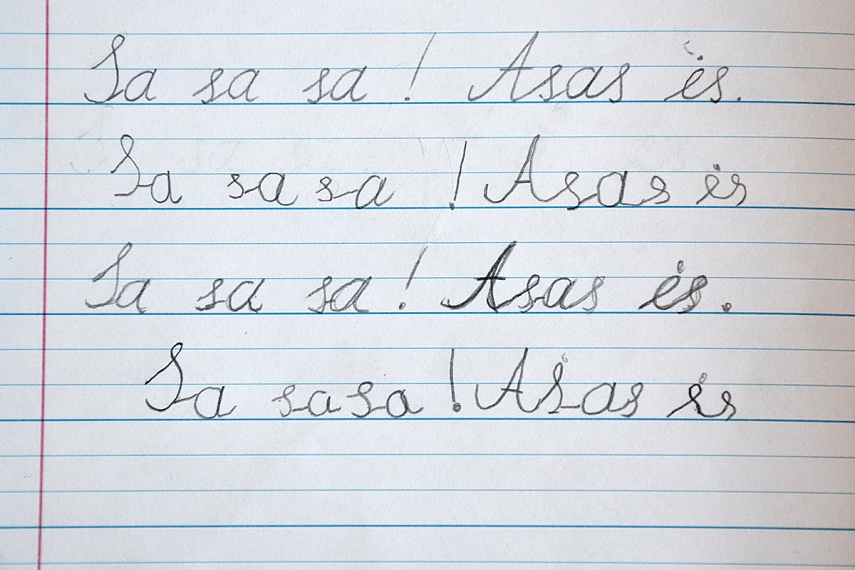 Sa sa sa ! Asas ės.
Sa sa sa ! Asas ės
Sa sa sa ! Asas ės.
Sa sasa ! Asas ės